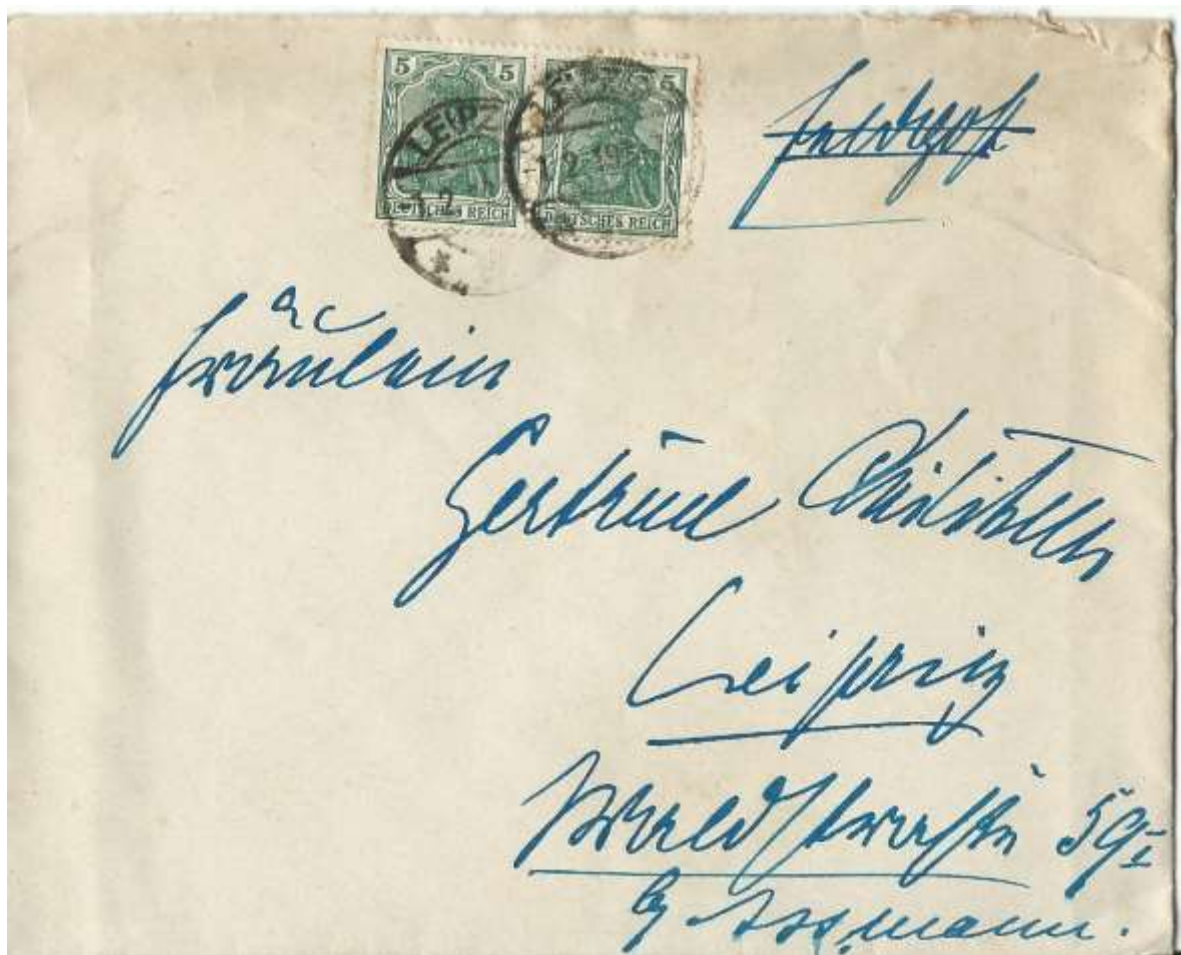 5 5 5
DEUTSCHES REICH DEUTSCHES REICH
LEIP
Feldpost
Fräulein
Gertrud
Leipzig
Waldstraße 59 I
b/ Assmann.